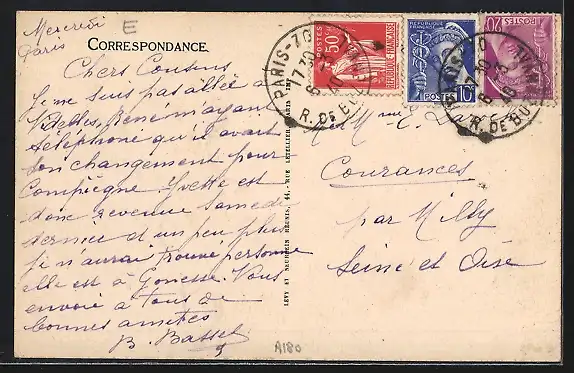 Mercredi
Paris
E
CORRESPONDANCE
Chers Cousins
Je ne suis pas allée à
René m'ayant
téléphoné qu'il avait
son changement pour
Compiègne Yvette est
donc revenue Samedi
dernier et un peu plus
je n'aurai trouvé personne
elle est à Gonesse Vous
envoie à tous de
bonnes amitiés
B. Bassel
LEVY ET NEURDEIN REUNIS, 44, RUE LETELLIER, PARIS
A180
POSTES 50c
REPUBLIQUE FRANCAISE
REPUBLIQUE FRANCAISE
POSTES 10c
20c
POSTES
PARIS
17 30
6
40
R. DE BU
17 30
6
40
R. DE BU
Courances
par Milly
Seine et Oise